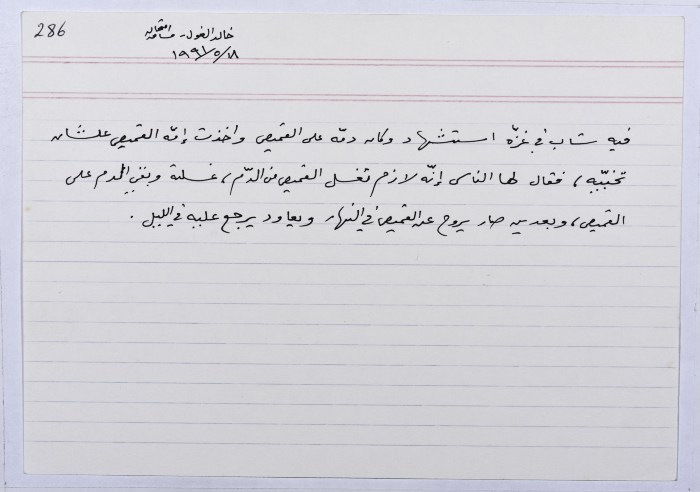 286
خالد الغول - مسافة
١٩٩١/٥/١٨
فيه شاب في غزّة استشهد وكان دمّه على القميص واخذت إمّه القميص علشان
تخبّيه، فقال لها الناس إنّه لازم تغسل القميص من الدّم، غسلته وبقي الدم على
القميص، وبعدين صار يروح عن القميص في النهار ويعاود يرجع عليه في الليل.